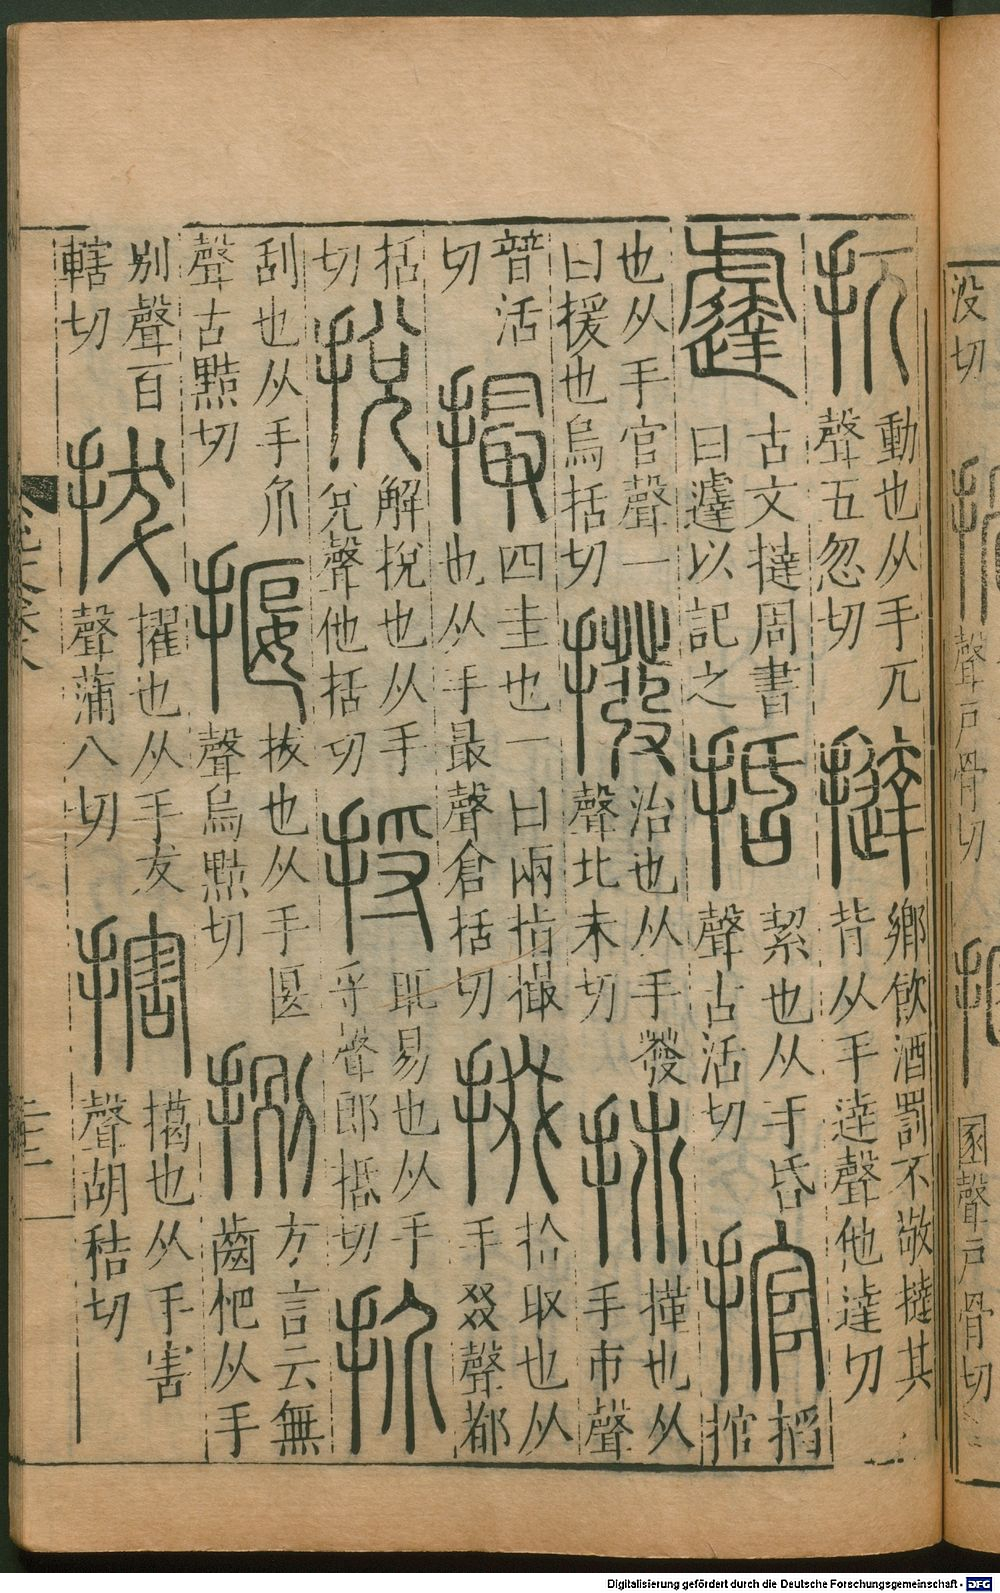 没切
聲戶骨切
圂聲戶骨切
扤
動也从手兀
聲五忽切
撻
鄉飲酒罰不敬撻其
背从手達聲他達切
古文撻周書
曰遽以記之
括
絜也从手𠯑
聲古活切
捾
搯
捾
也从手官聲一
曰援也烏括切
撥
治也从手發
聲北末切
撞也从
手巿聲
普活
切
撮
四圭也一曰兩指撮
也从手最聲倉括切
掇
拾取也从
手叕聲都
括
切
挩
解挩也从手
兌聲他括切
捋
取易也从手
寽聲郎抵切
扴
刮也从手介
聲古黠切
揠
拔也从手匽
聲烏黠切
捌
方言云無
齒杷从手
別聲百
轄切
拔
擢也从手犮
聲蒲八切
搳
擖也从手害
聲胡秸切